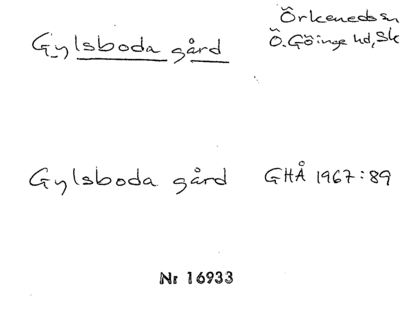 Gylsboda gård
Örkeneds sn
Ö. Göinge hd, Sk
Gylsboda gård GHÅ 1967:89
Nr 16933